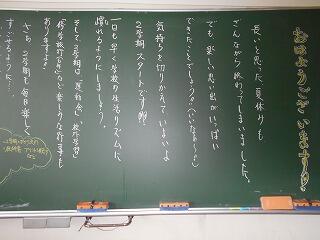 おはようございます!!
長いと思った夏休みも
ざんねんながら終わってしまいました。
でも、楽しい思い出がいっぱい
できたことでしょう!!(いいなぁ〜)
気持ちを切りかえていよいよ
2学期スタートです!!
一日も早く学校の生活リズムに
慣れるようにしましょう。
そして2学期は「運動会」「校外学習」
など楽しみな行事も
ありますよ!
さあ、2学期も毎日楽しく
すごせるように…。